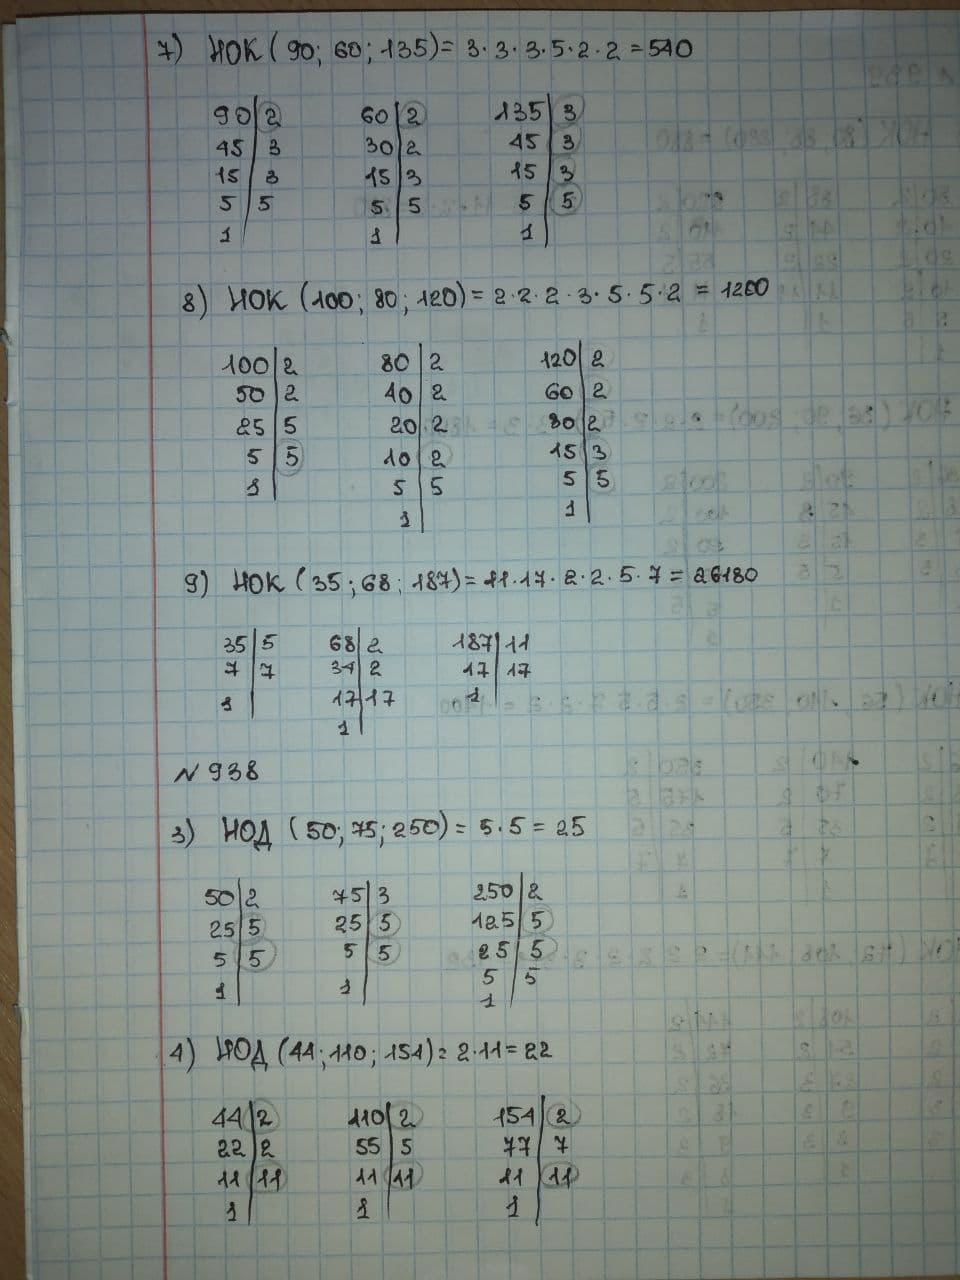 7) НОК (90; 60; 135) = 3·3·3·5·2·2 = 540
90|2 60|2 135|3
45|3 30|2 45|3
15|3 15|3 15|3
5|5 5|5 5|5
1 1 1
8) НОК (100; 80; 120) = 2·2·2·3·5·5·2 = 1200
100|2 80|2 120|2
50|2 40|2 60|2
25|5 20|2 30|2
5|5 10|2 15|3
1 5|5 5|5
1 1
9) НОК (35; 68; 187) = 11·17·2·2·5·7 = 26180
35|5 68|2 187|11
7|7 34|2 17|17
1 17|17 1
1
№ 938
3) НОД (50; 75; 250) = 5·5 = 25
50|2 75|3 250|2
25|5 25|5 125|5
5|5 5|5 25|5
1 1 5|5
1
4) НОД (44; 110; 154) = 2·11 = 22
44|2 110|2 154|2
22|2 55|5 77|7
11|11 11|11 11|11
1 1 1